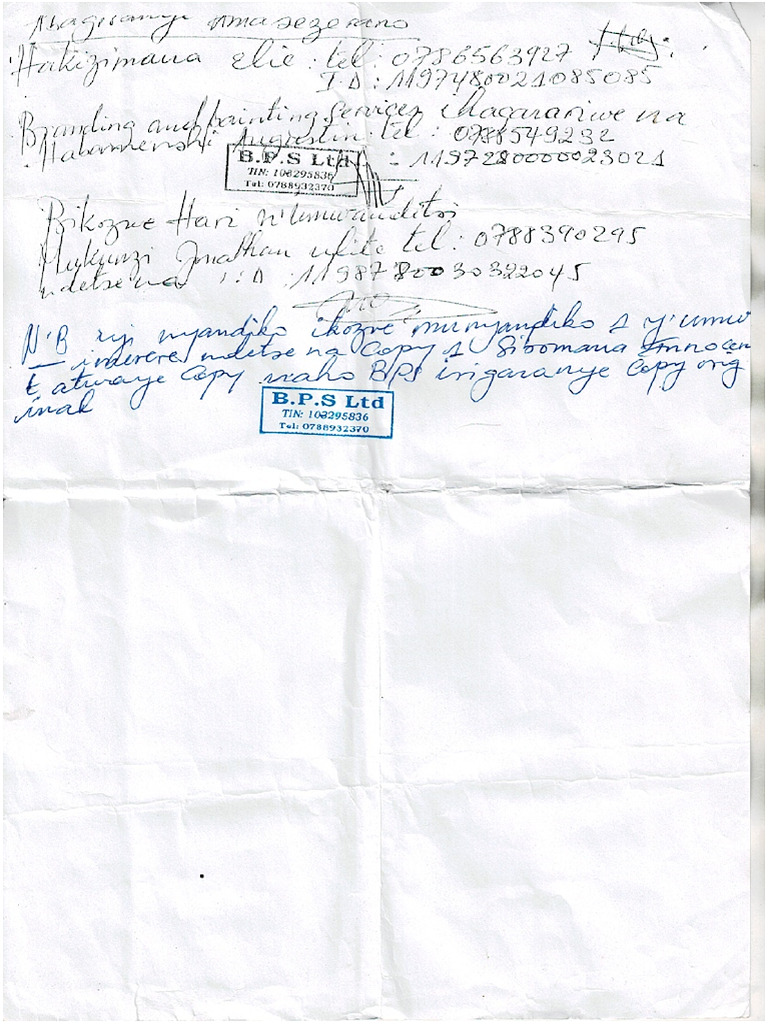 Abagiranye amasezerano
Hakizimana Elie : tel : 0786563927
I.D : 1197480021085085
Branding and Painting Services ihagarariwe na
Habamenshi Augustin tel : 0788549232
B.P.S Ltd : 1197280000023021
TIN: 103295836
Tel: 0788932370
Bikozwe Hari n'umwanditsi
Mukunzi Jonathan ufite tel : 0788390295
ndetse na I.D : 1198780030322045
N'B iyi nyandiko ikozwe mu nyandiko 1 y'umw
imerere ndetse na Copy 1 Sibomana Innocen
t atwaye Copy naho BPS irigaranye Copy orig
inal
B.P.S Ltd
TIN: 103295836
Tel: 0788932370